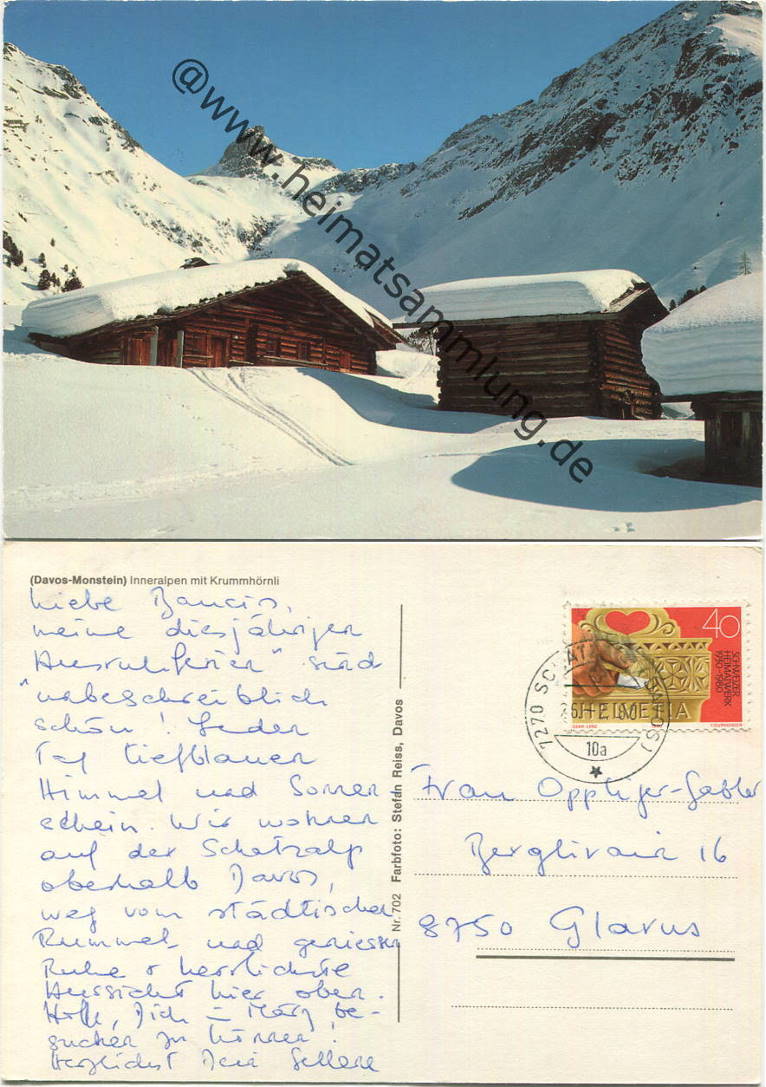 @www.heimatsammlung.de
(Davos-Monstein) Inneralpen mit Krummhörnli
Liebe
meine diesjährigen
"Ausruhferien" sind
unbeschreiblich
schön! Jeder
Tag tiefblauer
Himmel und Sonnen-
schein. Wir wohnen
auf der Schatzalp
oberhalb Davos,
weg vom städtischen
Rummel und geniessen
Ruhe + herrlichste
Aussicht hier oben.
Hoffe, Dich im März be-
suchen zu können!
Herzlichst Dein
Nr. 702 Farbfoto: Stefan Reiss, Davos
40
SCHWEIZER
HEIMATWERK
1930-1980
HELVETIA
7270 SCHATZALP (DAVOS)
10a
Frau
16
8750 Glarus